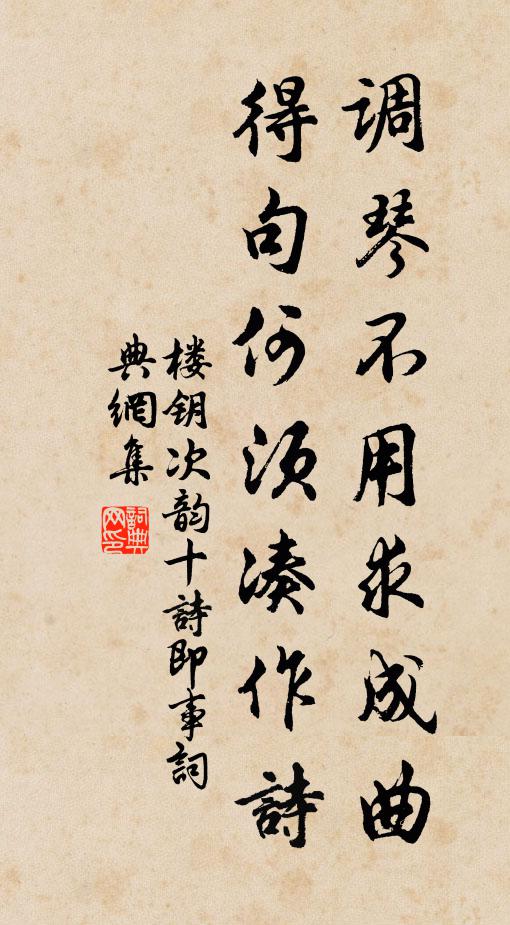 调琴不用求成曲
得句何须凑作詩
楼钥次韵十詩即事詞
典網集
詞典网印